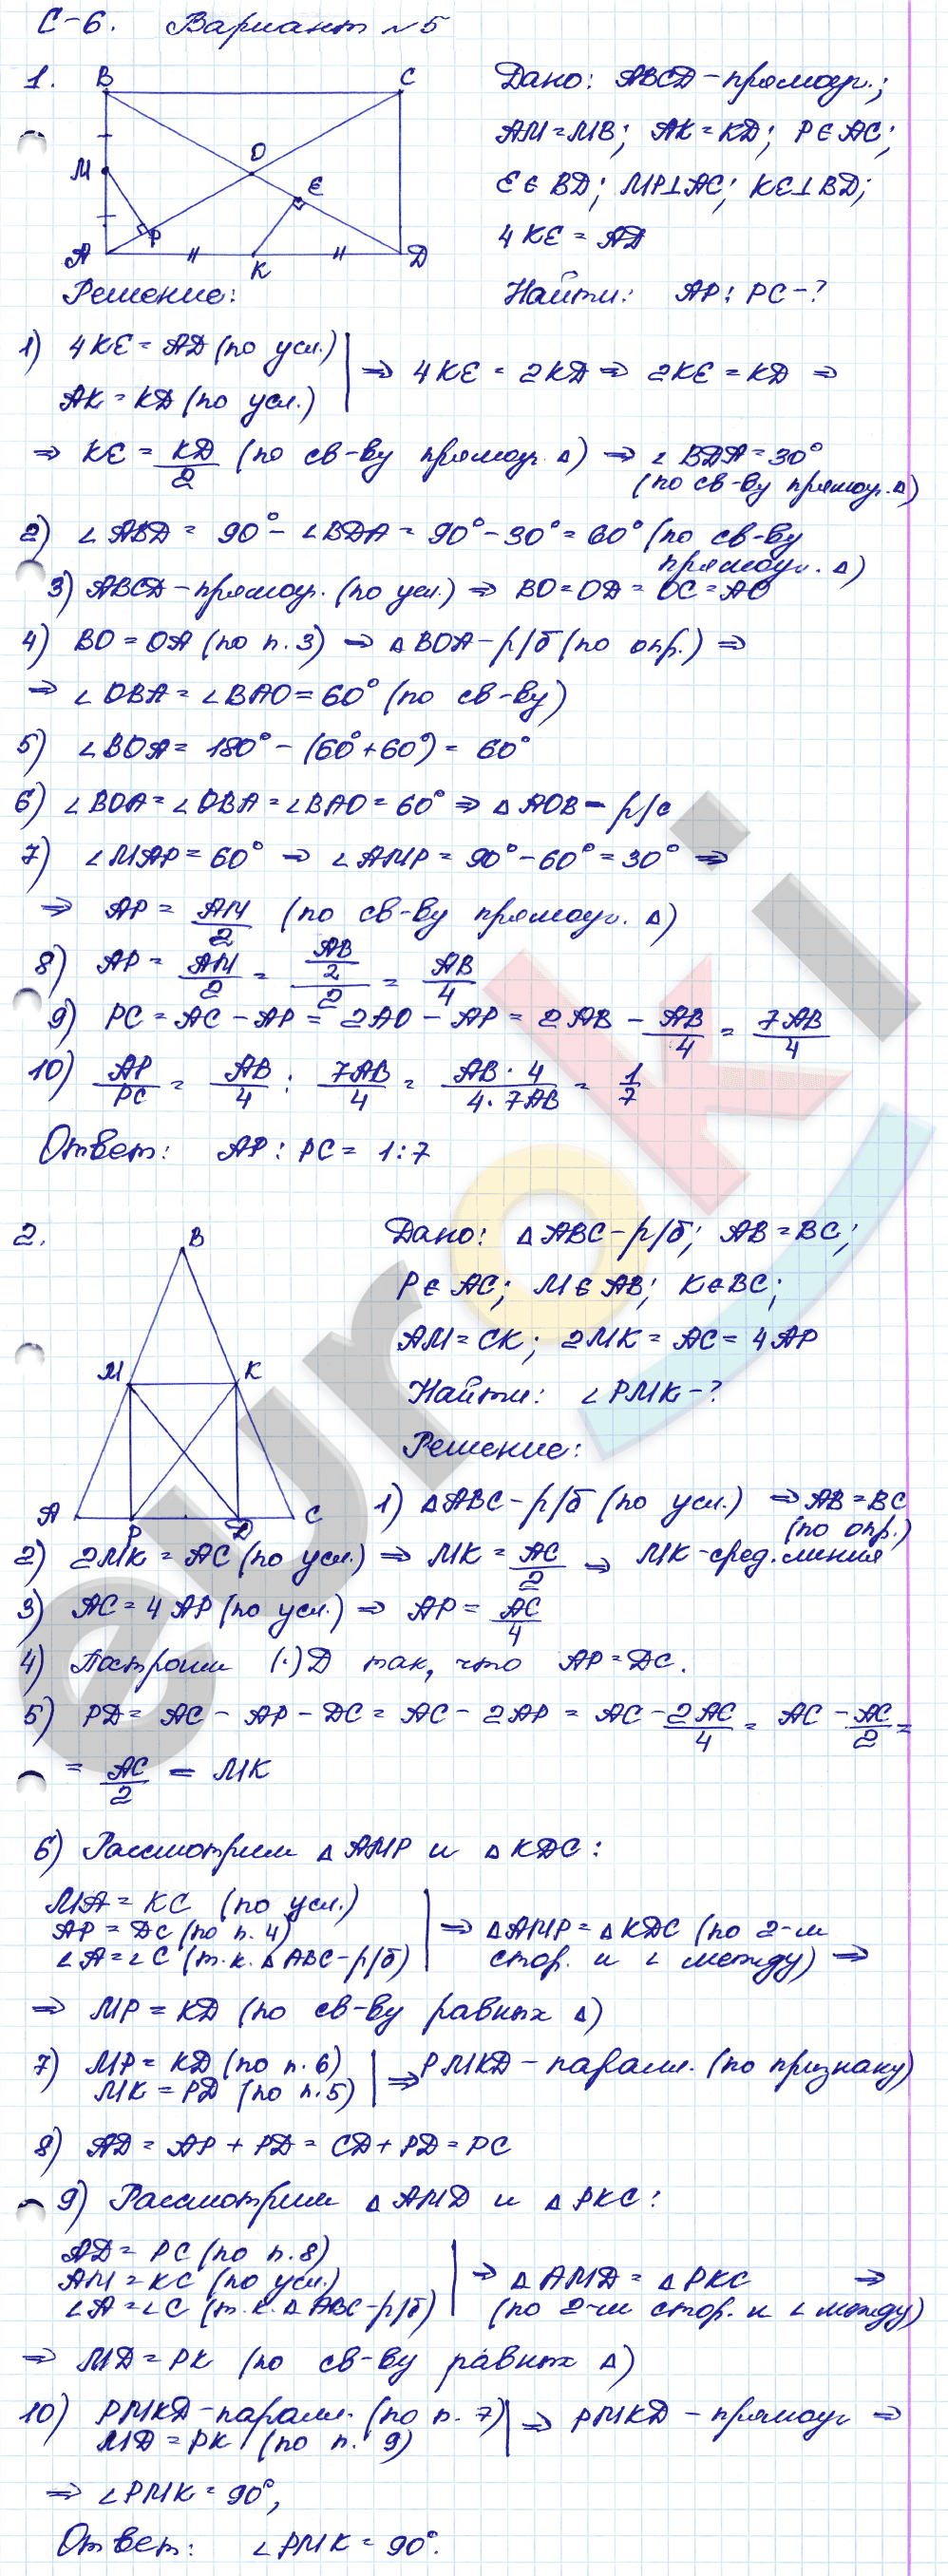 С-6. Вариант №5
1.
B
C
O
M
E
P
A
K
D
Дано: ABCD – прямоуг.;
AM = MB; AK = KD; P ∈ AC;
E ∈ BD; MP⊥AC; KE⊥BD;
4KE = AD
Решение:
Найти: AP : PC – ?
1) 4KE = AD (по усл.)
AK = KD (по усл.)
⇒ 4KE = 2KD ⇒ 2KE = KD ⇒
⇒ KE = KD/2 (по св-ву прямоуг. Δ) ⇒ ∠BDA = 30°
(по св-ву прямоуг. Δ)
2) ∠ABD = 90° – ∠BDA = 90° – 30° = 60° (по св-ву
прямоуг. Δ)
3) ABCD – прямоуг. (по усл.) ⇒ BO = OD = OC = AO
4) BO = OA (по п. 3) ⇒ ΔBOA – р/б (по опр.) ⇒
⇒ ∠OBA = ∠BAO = 60° (по св-ву)
5) ∠BOA = 180° – (60° + 60°) = 60°
6) ∠BOA = ∠OBA = ∠BAO = 60° ⇒ ΔAOB – р/с
7) ∠MAP = 60° ⇒ ∠AMP = 90° – 60° = 30° ⇒
⇒ AP = AM/2 (по св-ву прямоуг. Δ)
8) AP = AM/2 = (AB/2)/2 = AB/4
9) PC = AC – AP = 2AO – AP = 2AB – AB/4 = 7AB/4
10) AP/PC = AB/4 : 7AB/4 = AB · 4/4 · 7AB = 1/7
Ответ: AP : PC = 1 : 7
2.
B
M
K
A
P
D
C
Дано: ΔABC – р/б; AB = BC;
P ∈ AC; M ∈ AB; K ∈ BC;
AM = CK; 2MK = AC = 4AP
Найти: ∠PMK – ?
Решение:
1) ΔABC – р/б (по усл.) ⇒ AB = BC
(по опр.)
2) 2MK = AC (по усл.) ⇒ MK = AC/2 ⇒ MK – сред. линия
3) AC = 4AP (по усл.) ⇒ AP = AC/4
4) Построим (·) D так, что AP = DC.
5) PD = AC – AP – DC = AC – 2AP = AC – 2AC/4 = AC – AC/2 =
= AC/2 = MK
6) Рассмотрим ΔAMP и ΔKDC:
MA = KC (по усл.)
AP = DC (по п. 4)
∠A = ∠C (т.к. ΔABC – р/б)
⇒ ΔAMP = ΔKDC (по 2-м
стор. и ∠ между) ⇒
⇒ MP = KD (по св-ву равных Δ)
7) MP = KD (по п. 6)
MK = PD (по п. 5)
⇒ PMKD – паралл. (по признаку)
8) AD = AP + PD = CD + PD = PC
9) Рассмотрим ΔAMD и ΔPKC:
AD = PC (по п. 8)
AM = KC (по усл.)
∠A = ∠C (т.к. ΔABC – р/б)
⇒ ΔAMD = ΔPKC ⇒
(по 2-м стор. и ∠ между)
⇒ MD = PK (по св-ву равных Δ)
10) PMKD – паралл. (по п. 7)
MD = PK (по п. 9)
⇒ PMKD – прямоуг. ⇒
⇒ ∠PMK = 90°,
Ответ: ∠PMK = 90°.
euroki